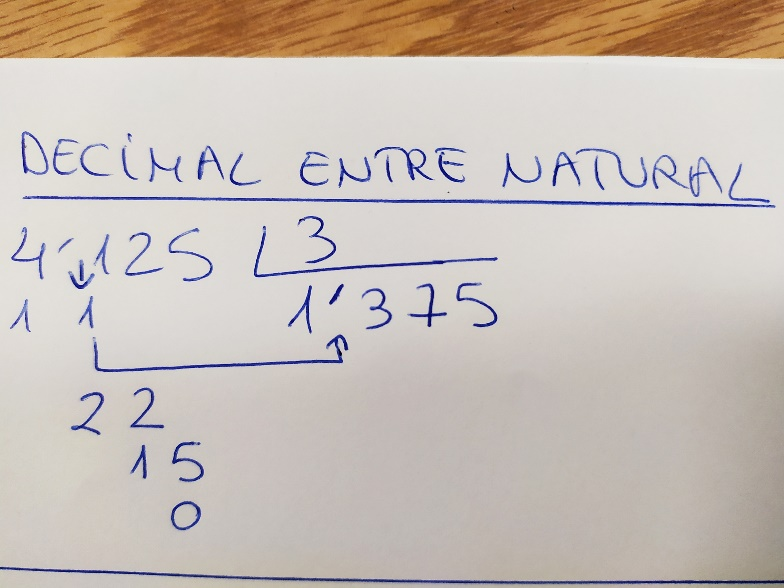 DECIMAL ENTRE NATURAL
4'125 3
1 1 1'375
2 2
15
0